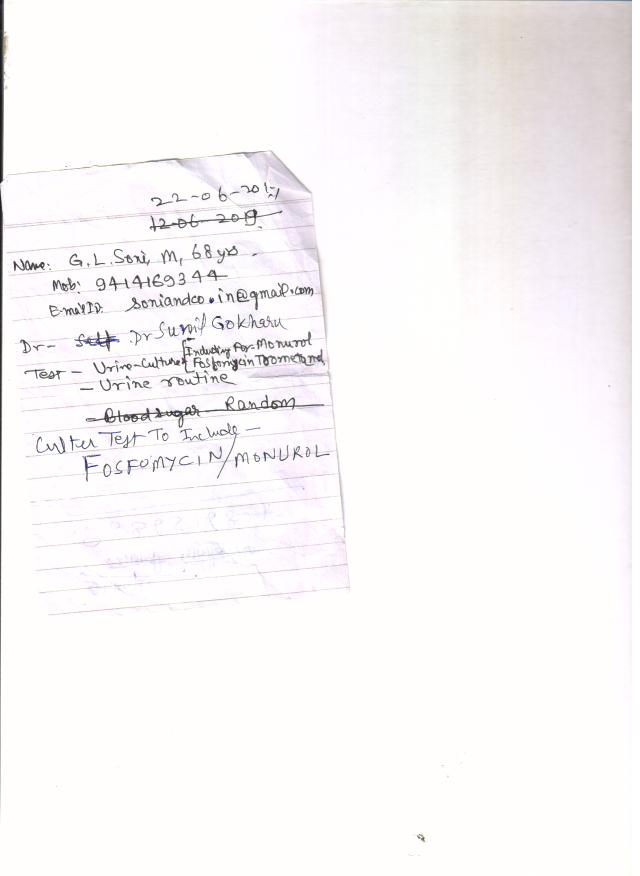 22-06-2017
12-06-2019.
Name: G.L. Soni, M, 68 yrs.
Mob: 9414169344
E-mail ID: soniandco.in@gmail.com
Dr- Self Dr Sunil Gokharu
Test - Urine-Culture [Including For-Monurol
[Fosfomycin Trometamol
- Urine routine
- Blood sugar Random
Cultur Test To Include -
FOSFOMYCIN/MONUROL